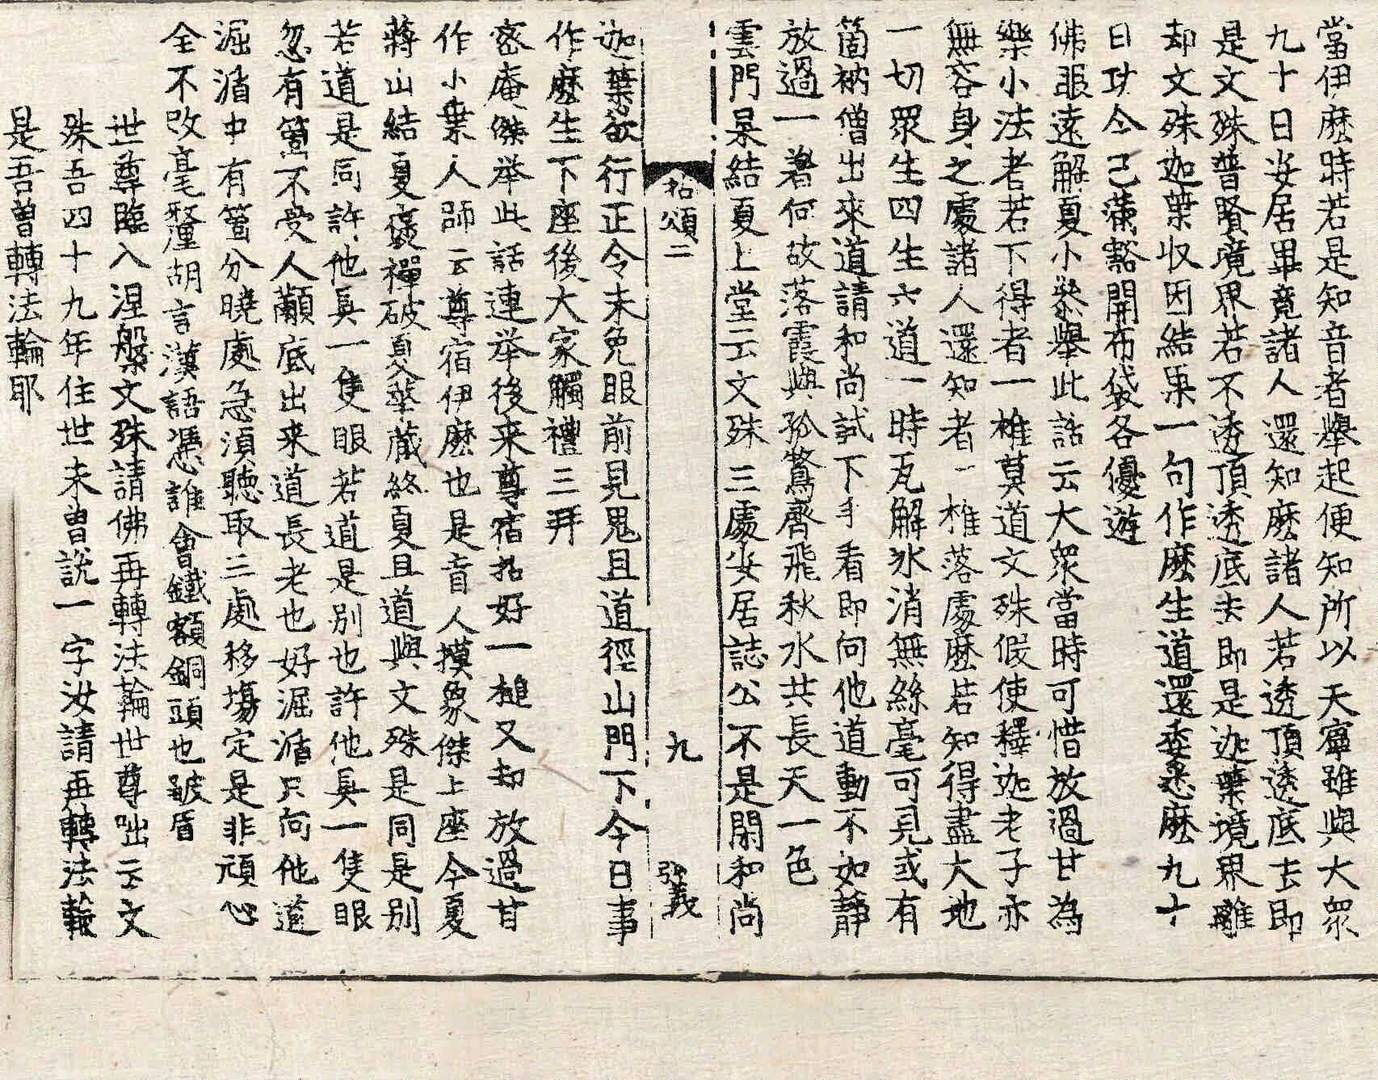 當伊麽時若是知音者舉起便知所以天寧雖與大衆
九十日安居畢竟諸人還知麽諸人若透頂透底去即
是文殊普賢境界若不透頂透底去即是迦葉境界離
却文殊迦葉收因結果一句作麽生道還委悉麽九十
日功今已滿豁開布袋各優遊
佛眼遠解夏小叅舉此話云大衆當時可惜放過甘為
樂小法者若下得者一椎莫道文殊假使釋迦老子亦
無容身之處諸人還知者一椎落處麽若知得盡大地
一切眾生四生六道一時瓦解氷消無絲毫可見或有
箇衲僧出來道請和尚試下手看即向他道動不如靜
放過一著何故落霞與孤鶩齊飛秋水共長天一色
雲門杲結夏上堂云文殊三處安居誌公不是閑和尚
拈頌二 九 弘義
迦葉欲行正令未免眼前見鬼且道徑山門下今日事
作麽生下座後大家觸禮三拜
密庵傑举此話連举後来尊宿拈好一槌又却放過甘
作小乗人師云尊宿伊麽也是盲人摸象傑上座今夏
蔣山結夏褒禪破夏華藏終夏且道與文殊是同是别
若道是同許他具一隻眼若道是别也許他具一隻眼
忽有箇不受人瞞底出来道長老也好淈㵧只向他道
淈㵧中有箇分曉處急須聽取三處移場定是非頑心
全不改毫釐胡言漢語憑誰會鐵額銅頭也皺眉
世尊臨入涅槃文殊請佛再轉法輪世尊咄云文
殊吾四十九年住世未曾說一字汝請再轉法輪
是吾曾轉法輪耶